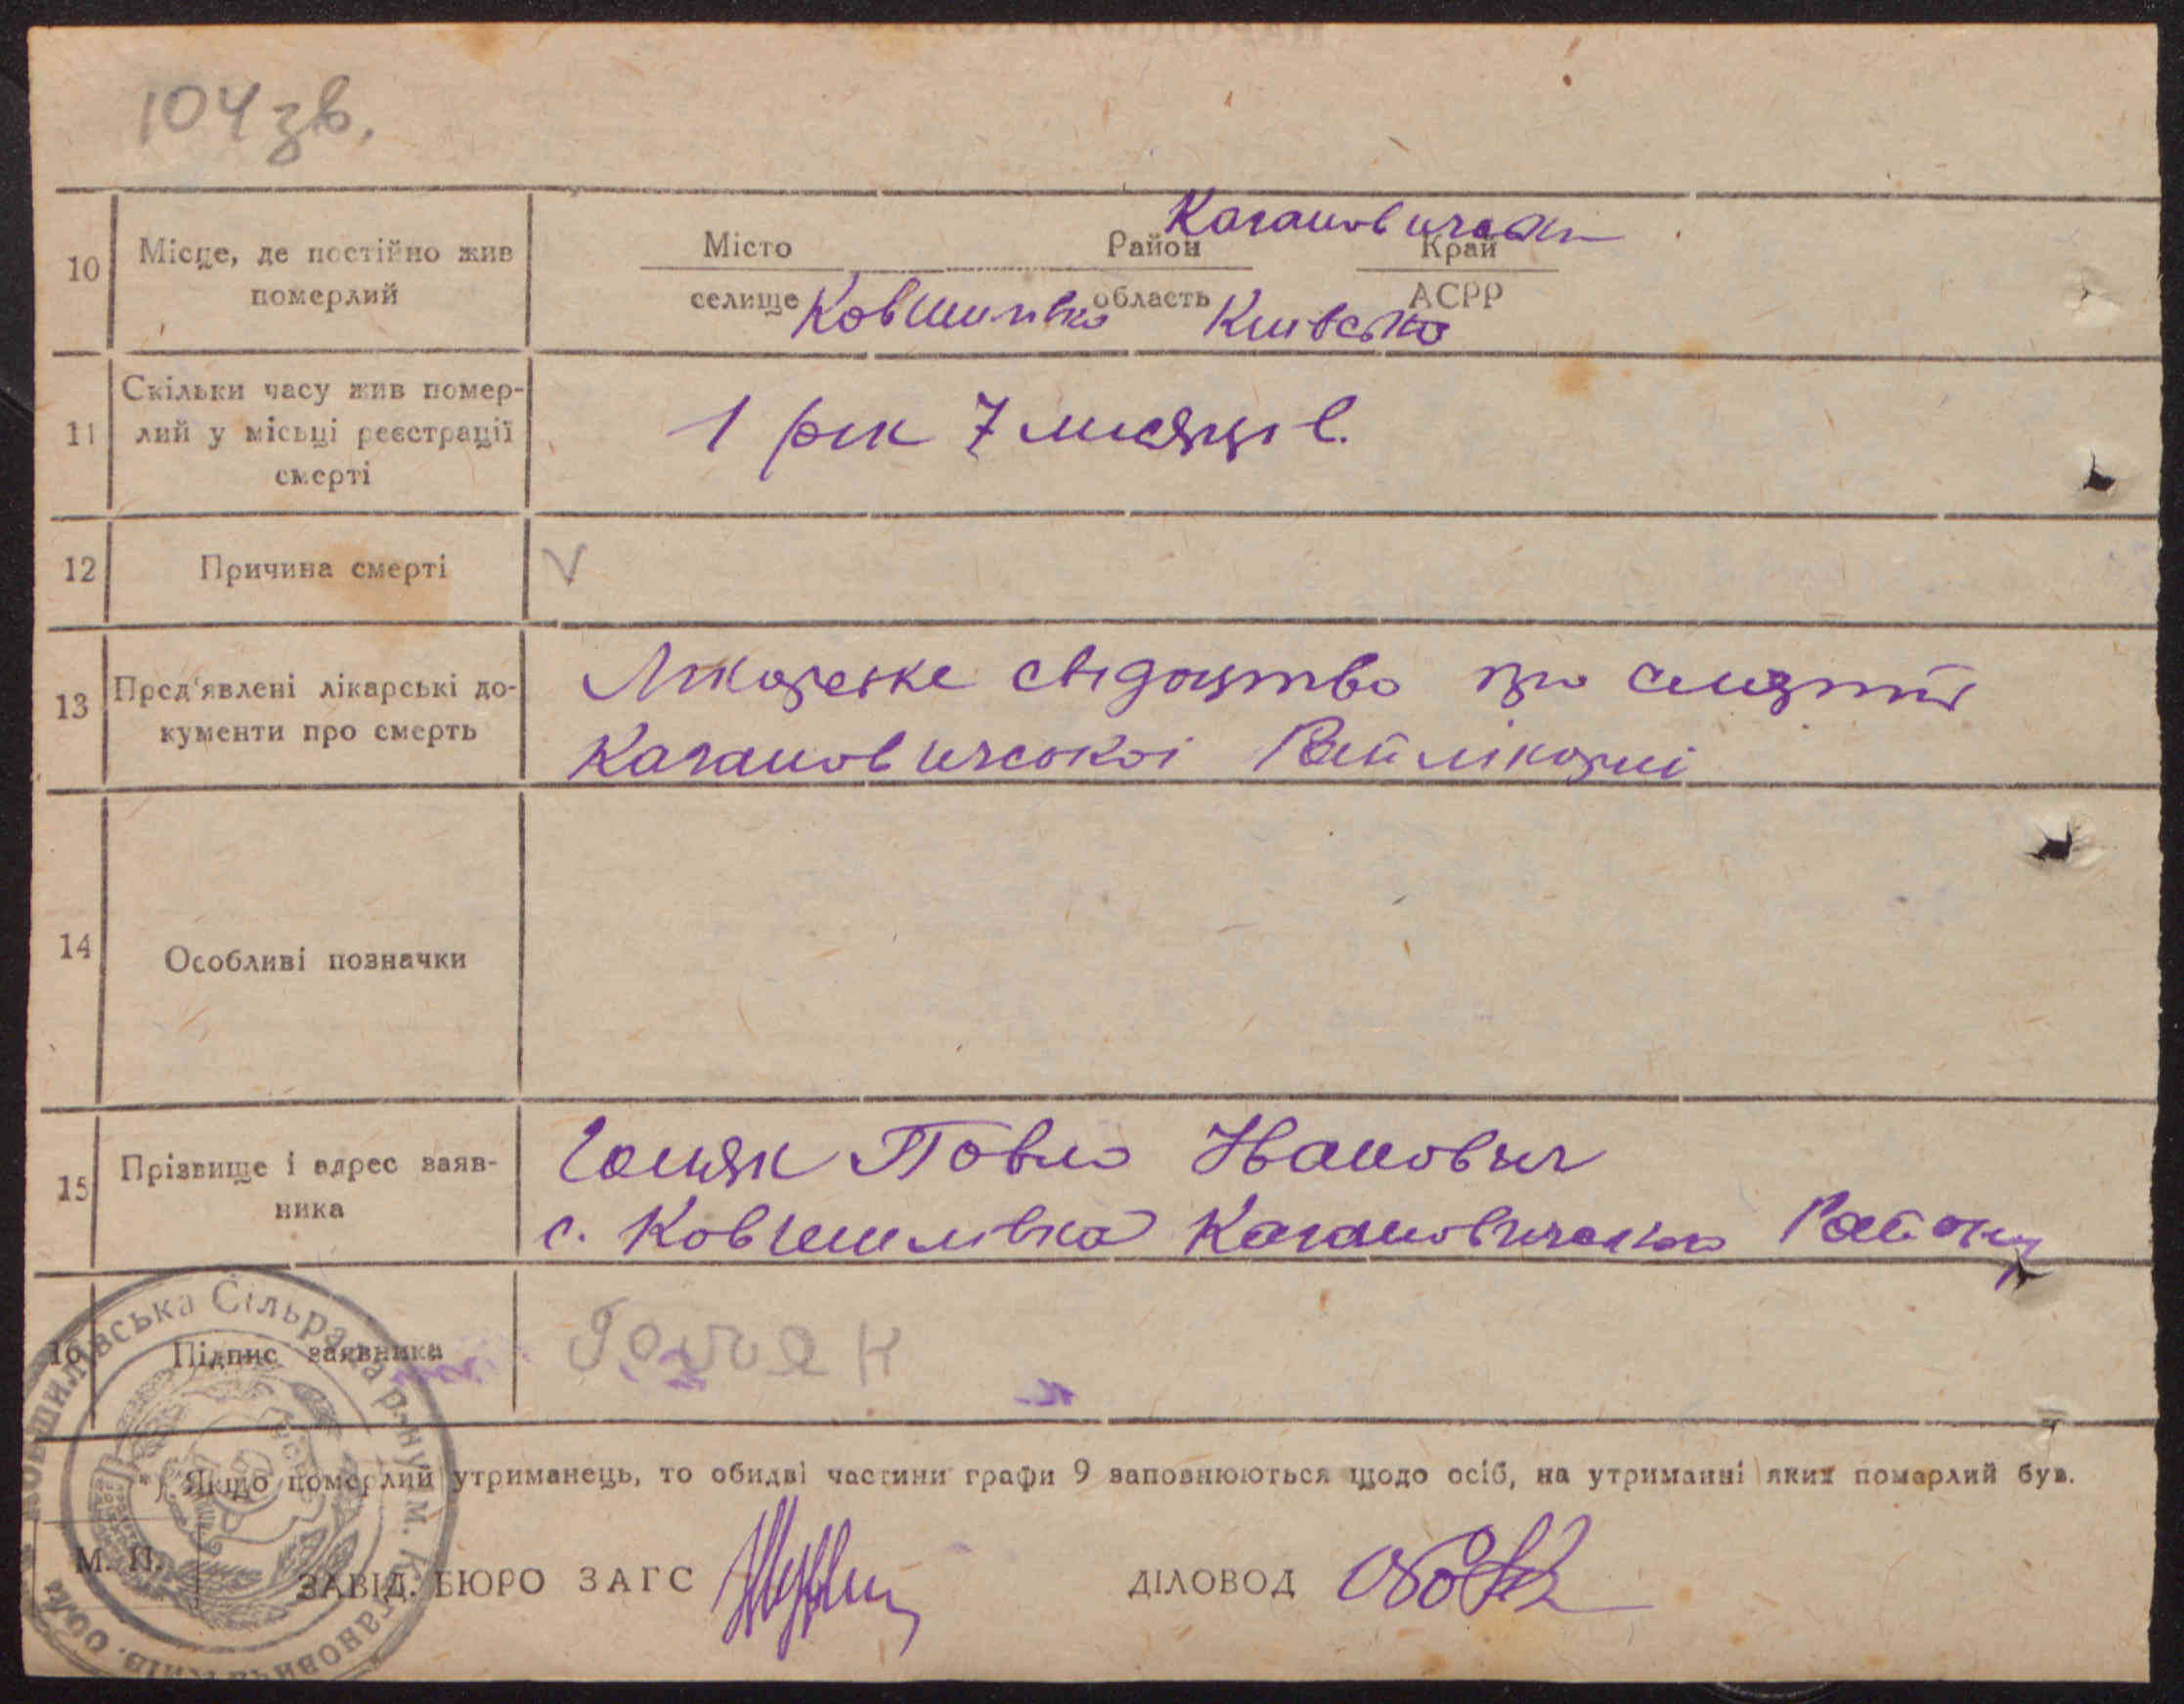 104 зв.
10 Місце, де постійно жив померлий
Місто Район Кагановичський Край
селище Ковшилівка область Київська АСРР
11 Скільки часу жив помер-
лий у місьці реєстрації
смерті
1 рік 7 місяців.
12 Причина смерті V
13 Пред'явлені лікарські до-
кументи про смерть
Лікарське свідоцтво про смерть
Кагановичської Райлікарні
14 Особливі позначки
15 Прізвище і адрес заяв-
ника
Павло Іванович
с. Ковшилівка Кагановичського Району
16 Підпис заявника
*) Якщо померлий утриманець, то обидві частини графи 9 заповнюються щодо осіб, на утриманні яких померлий був.
М. П.
ЗАВІД. БЮРО ЗАГС
ДІЛОВОД
Ковшилівська Сільрада р-ну ім. Кагановича Київ. обл.